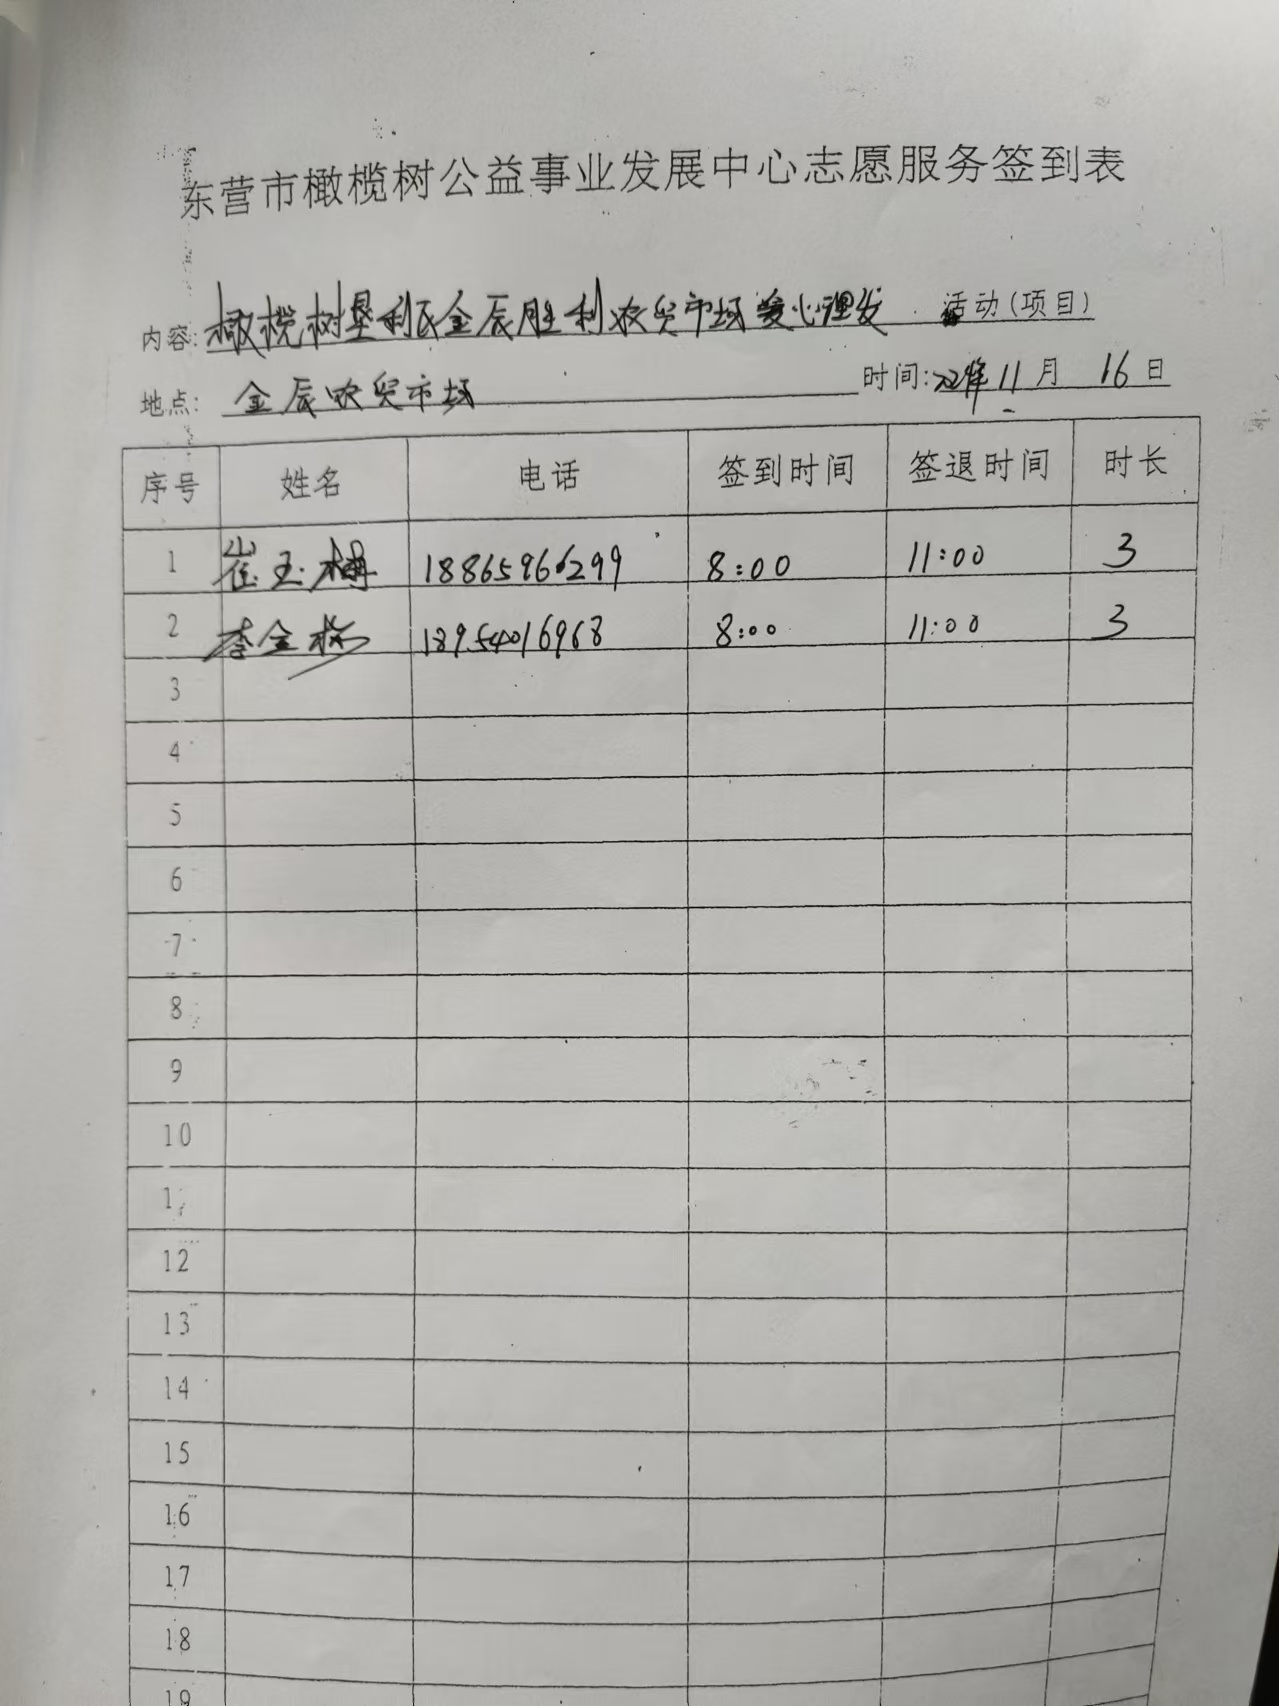 东营市橄榄树公益事业发展中心志愿服务签到表
内容: 橄榄树垦利区金辰胜利农贸市场爱心理发 活动(项目)
地点: 金辰农贸市场 时间: 年 11 月 16 日
序号 姓名 电话 签到时间 签退时间 时长
1 崔玉梅 18865966299 8:00 11:00 3
2 李金 18954016968 8:00 11:00 3
3
4
5
6
7
8
9
10
12
13
14
15
16
17
18
19